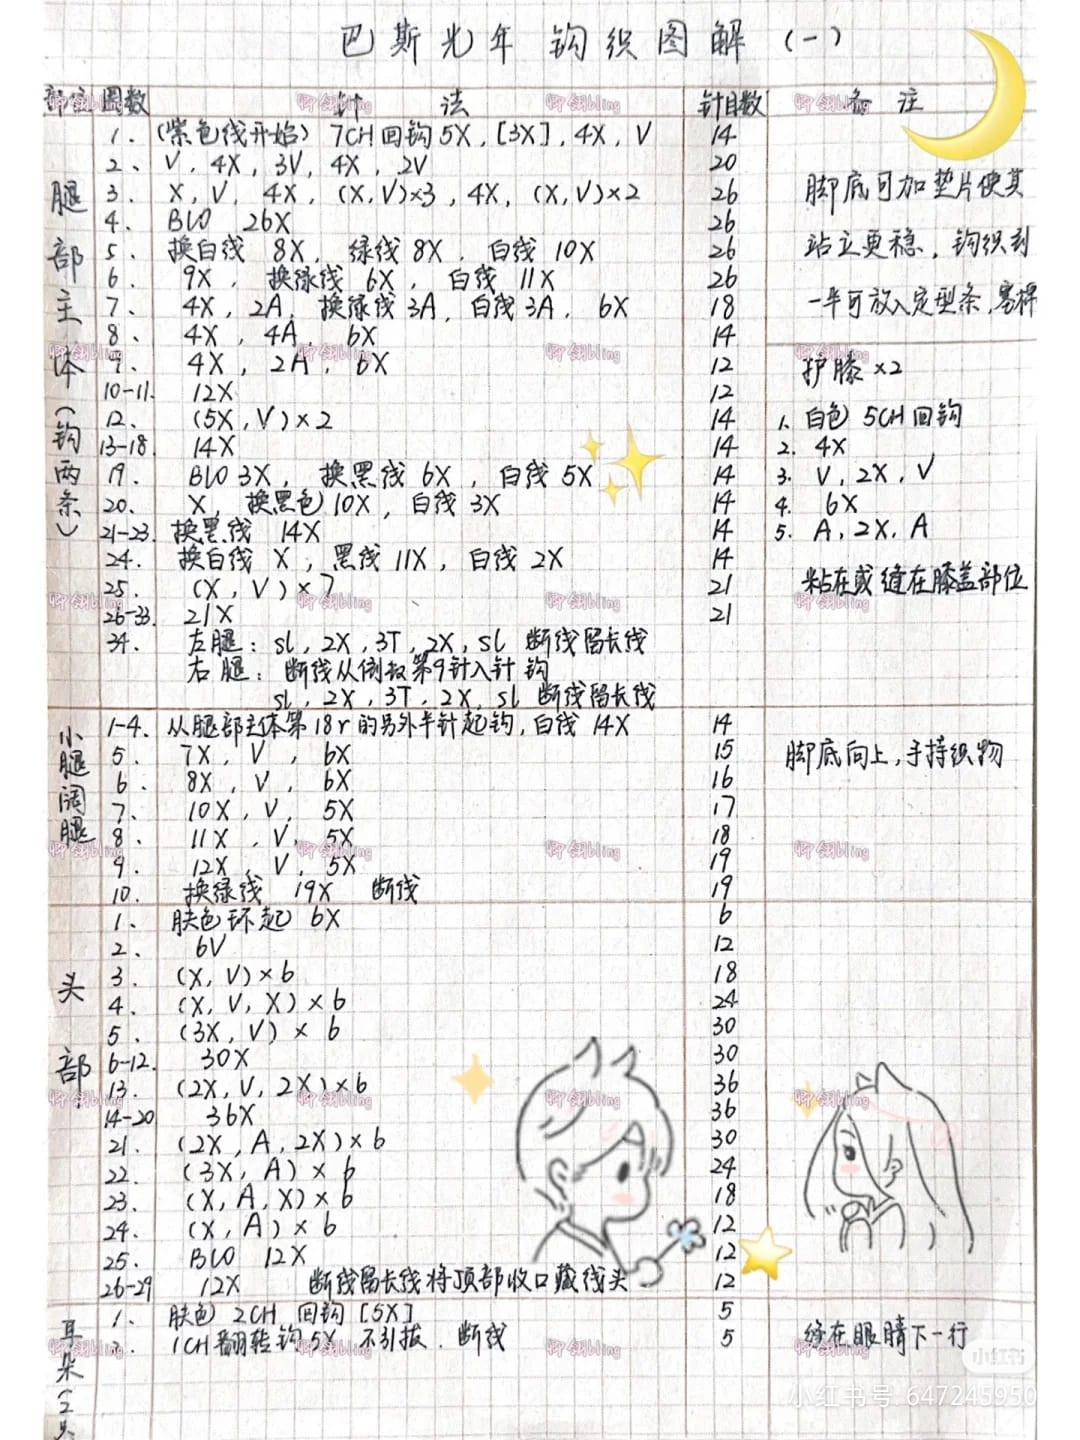 巴斯光年 钩织图解 (一)
部位 圈数 针法 针目数 备注
腿部主体(钩两条)
1. (紫色线开始) 7CH回钩5X, [3X], 4X, V 14
2、 V, 4X, 3V, 4X, 2V 20
3. X, V, 4X, (X,V)×3, 4X, (X,V)×2 26
4. BLO 26X 26
5. 换白线 8X, 绿线 8X, 白线 10X 26
6. 9X, 换绿线 6X, 白线 11X 26
7. 4X, 2A, 换绿线 3A, 白线 3A, 6X 18
8. 4X, 4A, 6X 14
9. 4X, 2A, 6X 12
10-11. 12X 12
12. (5X, V)×2 14
13-18. 14X 14
19. BLO 3X, 换黑线 6X, 白线 5X 14
20. X, 换黑色 10X, 白线 3X 14
21-23. 换黑线 14X 14
24. 换白线 X, 黑线 11X, 白线 2X 14
25. (X, V)×7 21
26-33. 21X 21
34. 左腿: sl, 2X, 3T, 2X, sl 断线留长线
右腿: 断线从倒数第9针入针 钩
sl, 2X, 3T, 2X, sl 断线留长线
脚底可加垫片使其
站立更稳, 钩织到
一半可放入定型条,
护膝×2
1. 白色 5CH 回钩
2. 4X
3. V, 2X, V
4. 6X
5. A, 2X, A
粘在或缝在膝盖部位
小腿阔腿
1-4. 从腿部主体第18r的另外半针起钩, 白线 14X 14
5. 7X, V, 6X 15
6. 8X, V, 6X 16
7. 10X, V, 5X 17
8. 11X, V, 5X 18
9. 12X, V, 5X 19
10. 换绿线 19X 断线 19
脚底向上, 手持织物
头部
1. 肤色环起 6X 6
2. 6V 12
3. (X, V)×6 18
4. (X, V, X)×6 24
5. (3X, V)×6 30
6-12. 30X 30
13. (2X, V, 2X)×6 36
14-20 36X 36
21. (2X, A, 2X)×6 30
22. (3X, A)×6 24
23. (X, A, X)×6 18
24. (X, A)×6 12
25. BLO 12X 12
26-29 12X 断线留长线将顶部收口藏线头 12
耳朵(2只
1. 肤色 2CH 回钩 [5X] 5
2. 1CH翻转钩5X 不引拔. 断线 5
缝在眼睛下一行
小红书
小红书号: 647245950